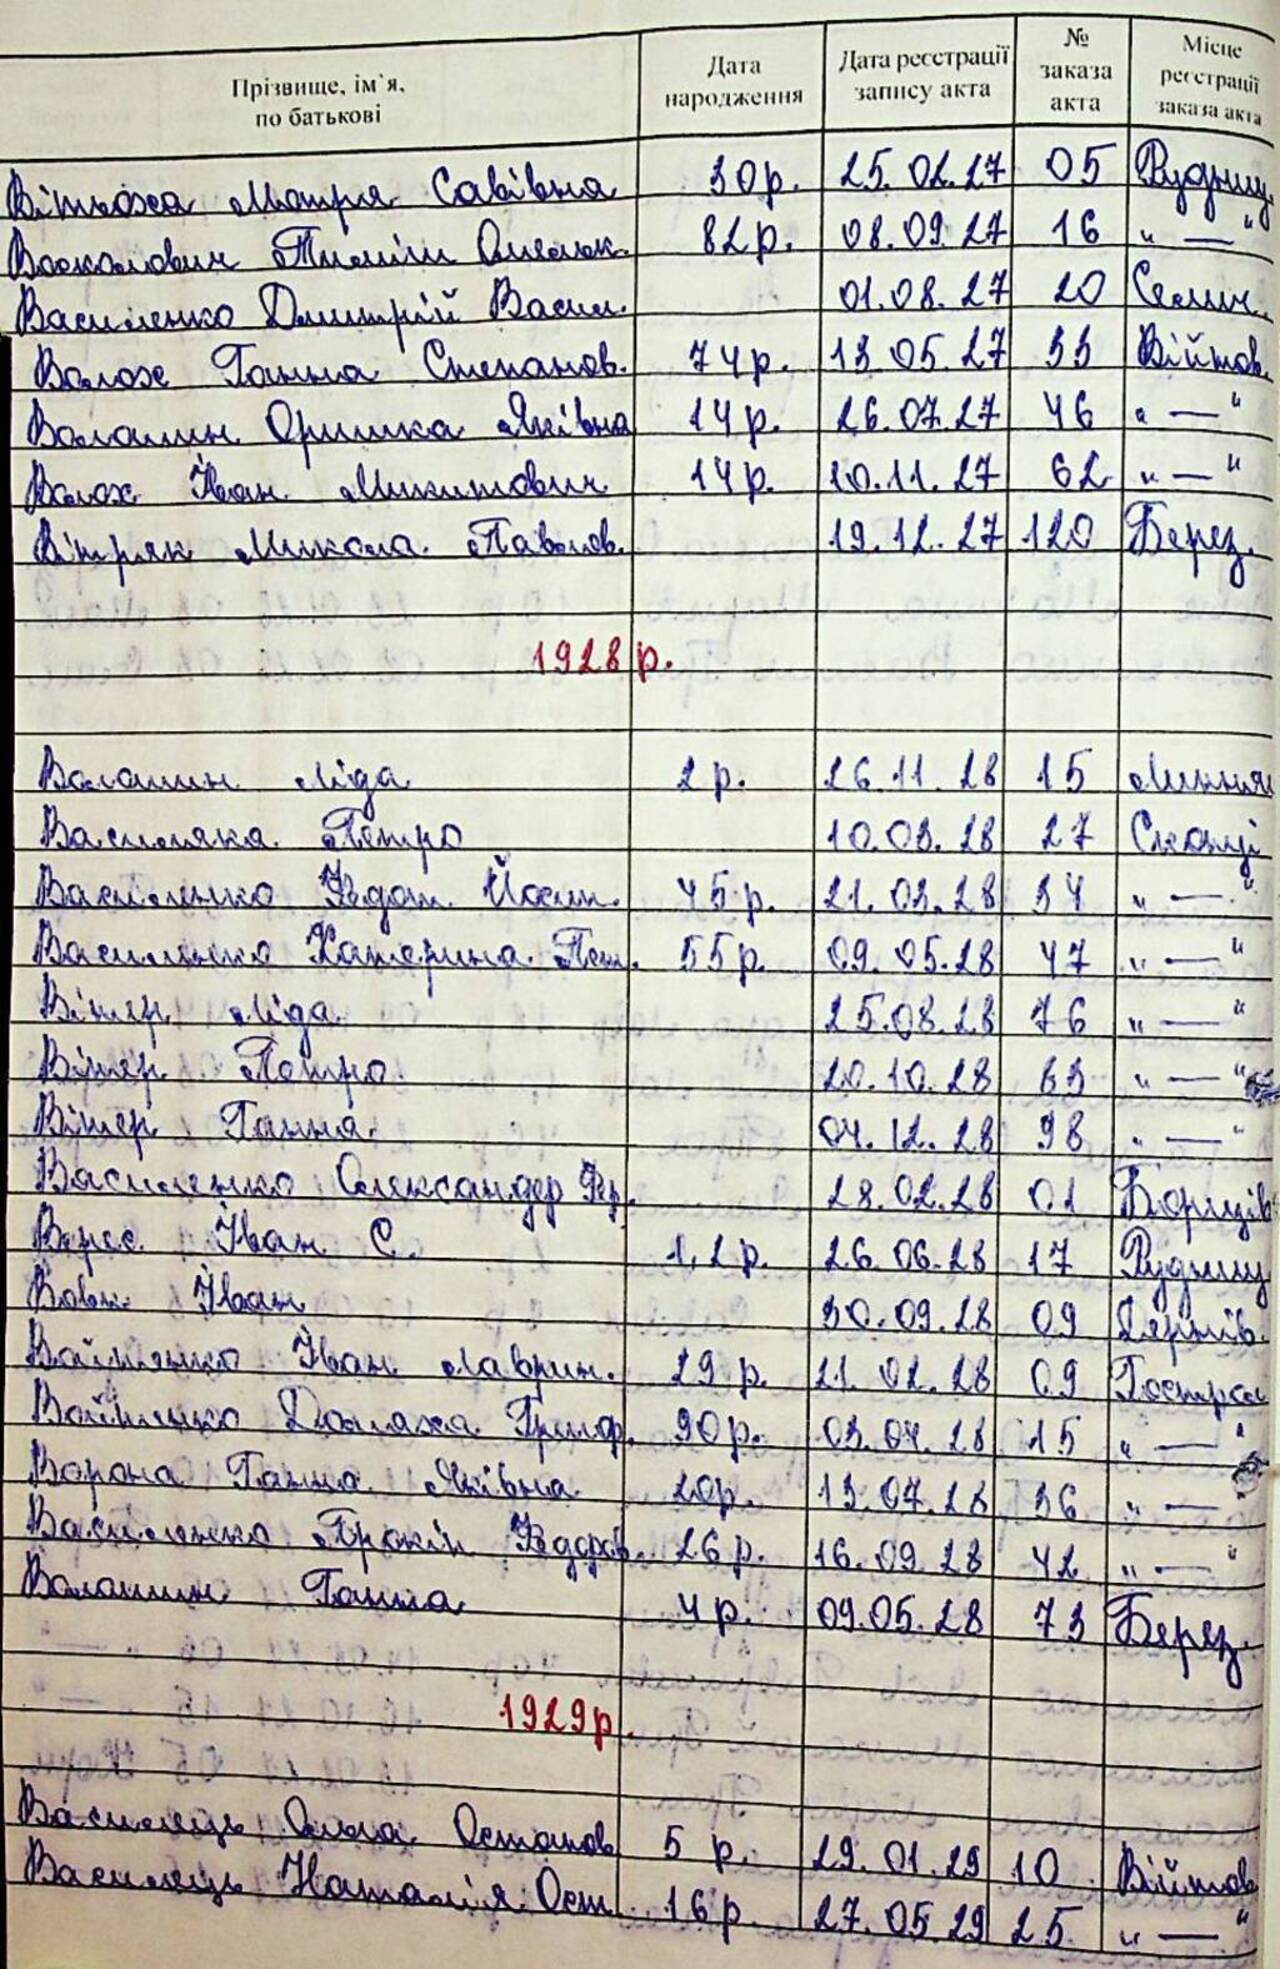 Прізвище, ім`я, по батькові Дата народження Дата реєстрації запису акта № заказа акта Місце реєстрації заказа акта
Вітьоха Мотря Савівна 30р. 25.02.27 05 Рудниц.
Восколович Тиміш Омелюк. 82р. 08.09.27 16 " — "
Василенко Дмитрій Васил. 01.08.27 20 Семин.
Волох Ганна Степанов. 74р. 13.05.27 33 Війтов.
Волошин Оришка Яківна 14р. 26.07.27 46 " — "
Волох Іван Микитович 14р. 20.11.27 62 " — "
Вітряк Микола Павлов. 19.12.27 120 Берез.
1928р.
Волошин Ліда 2р. 26.11.28 15
Василяка Петро 10.03.28 27
Василенко Федот Йосип. 45р. 21.03.28 34 " — "
Василенко Катерина Пет. 55р. 09.05.28 47 " — "
Вітер Ліда 25.08.28 76 " — "
Вітер Петро 20.10.28 83 " — "
Вітер Ганна 04.12.28 98 " — "
Василенко Олександер Фед. 28.02.28 01 Борщів
Верес Іван С. 1,2р. 26.06.28 17 Рудниц
Вовк Іван 30.09.28 09 Дернів.
Войтенко Іван Лаврин. 29р. 21.02.28 09 Гостра
Войтенко Домаха Гриф. 90р. 03.04.28 15 " — "
Ворона Ганна Яківна 20р. 13.07.28 36 " — "
Василенко Прокіп Федорів. 26р. 16.09.28 42 " — "
Волошин Ганна 4р. 09.05.28 73 Берез.
1929р.
Василець Ольга Остапов 5 р. 29.01.29 10 Війтов
Василець Наталія Ост. 16р. 27.05.29 25 " — "